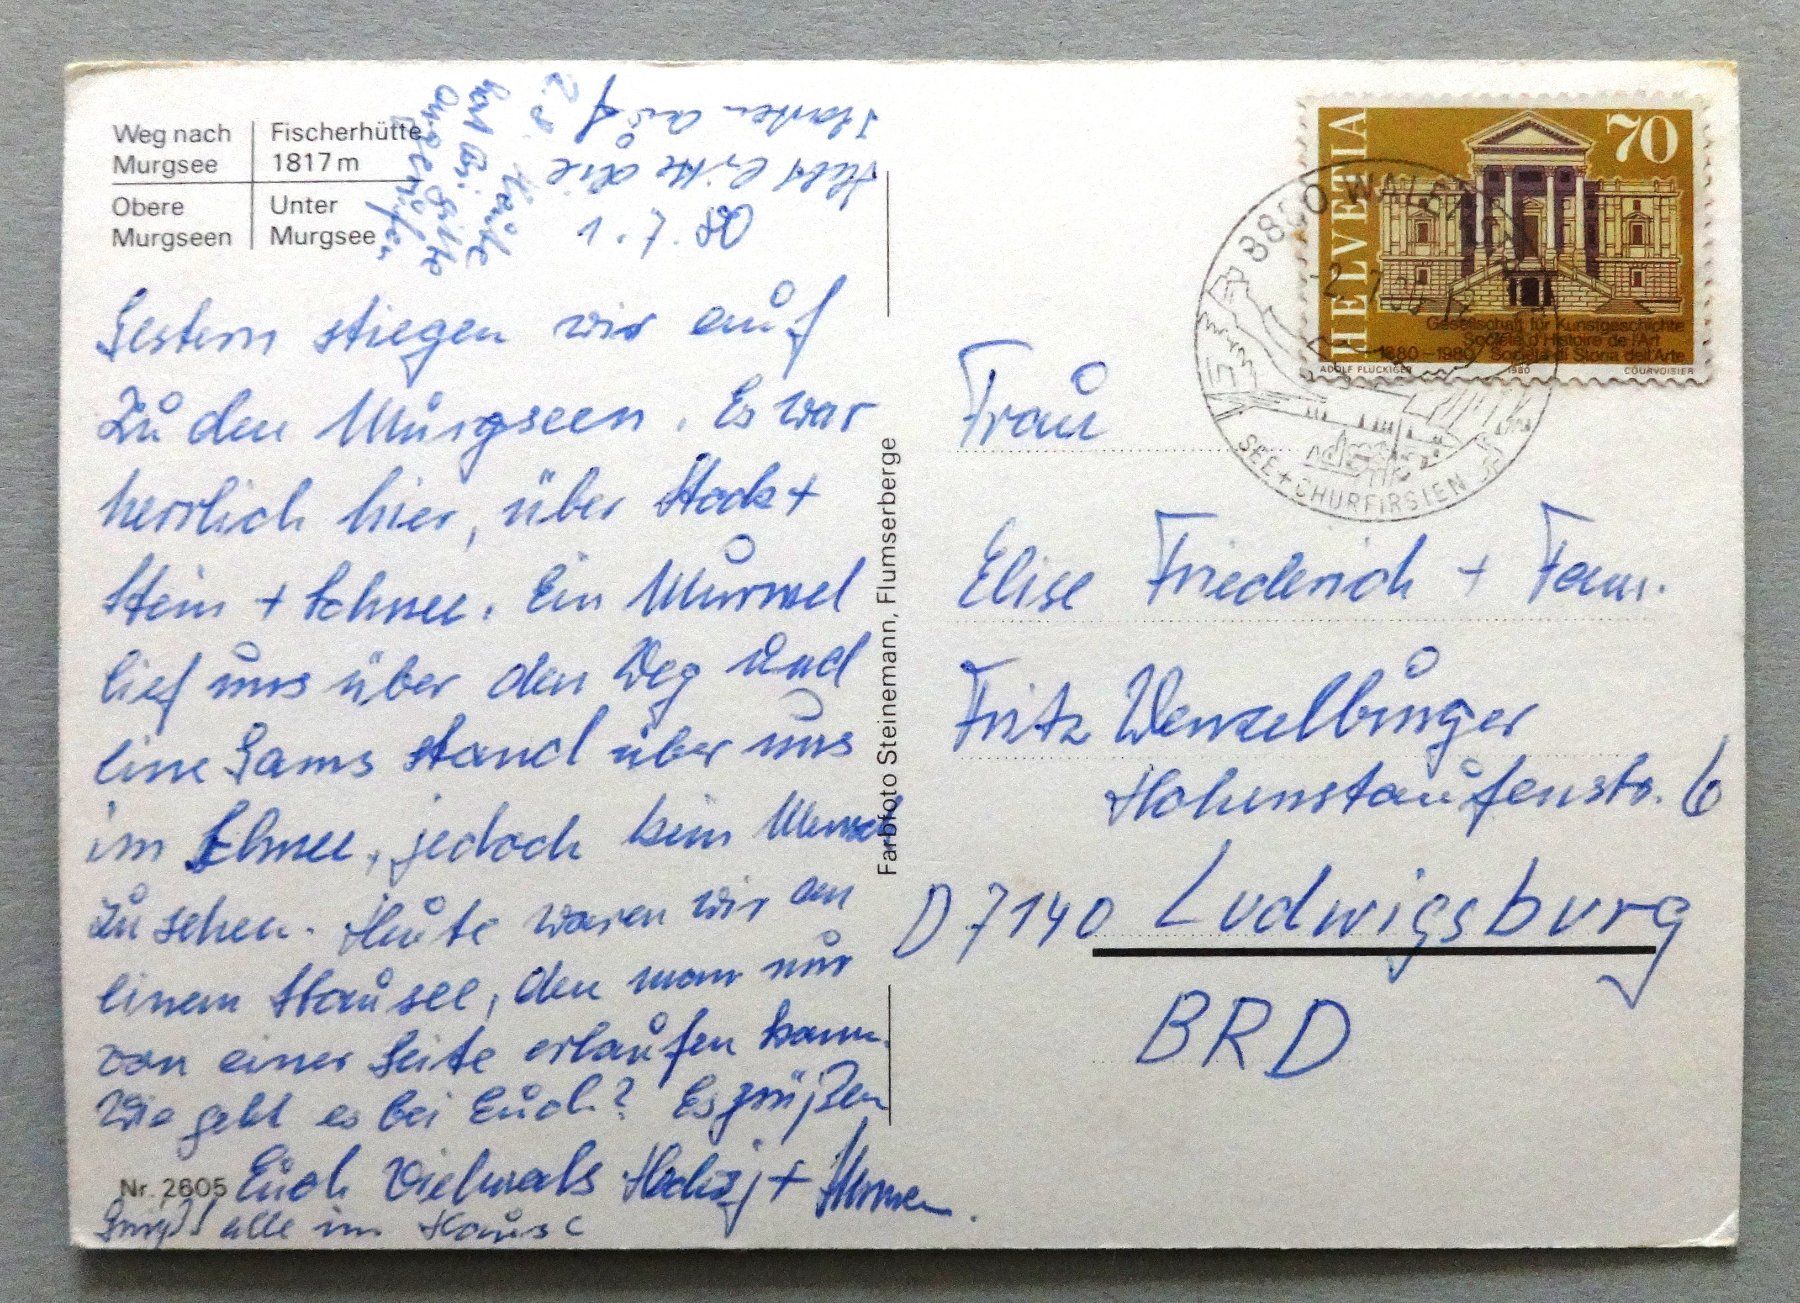 Weg nach Murgsee
Fischerhütte 1817 m
Obere Murgseen
Unter Murgsee
1.7.80
Hebt bitte die
Karten auf
2.8. Heute
hat Brigitte
angerufen
Gestern stiegen wir auf
zu den Murgseen. Es war
herrlich hier, über Stock +
Stein + Schnee. Ein Murmel
lief uns über den Weg und
eine Gams stand über uns
im Schnee, jedoch kein Mensch
zu sehen. Heute waren wir an
einem See, den man nur
von einer Seite erlaufen kann.
Wie geht es bei Euch? Es grüßen
Euch vielmals +
Grüßt alle im Hause
Nr. 2605
Farbfoto Steinemann, Flumserberge
HELVETIA
70
Gesellschaft für Kunstgeschichte
Société d'Histoire de l'Art
1880–1980 Società di Storia dell'Arte
ADOLF FLÜCKIGER 1980 COURVOISIER
8880 WALENSTADT
-2.7.80
SEE + CHURFIRSTEN
Frau
Elise Friederich + Fam.
Fritz Wenzelburger
Hohenstaufenstr. 6
D 7140 Ludwigsburg
BRD